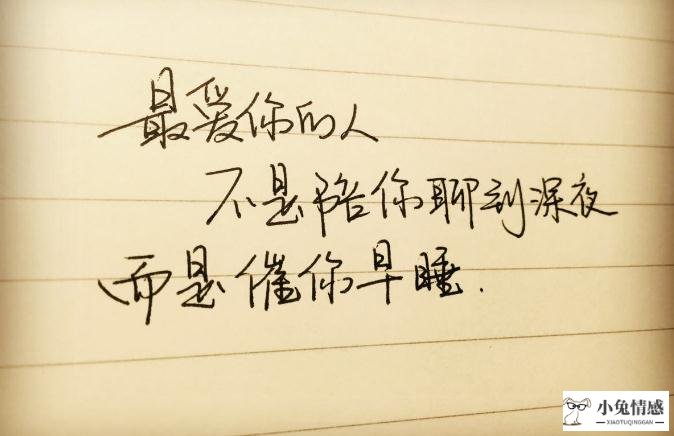 最爱你的人
不是陪你聊到深夜
而是催你早睡.
小兔情感
XIAOTUQINGGAN